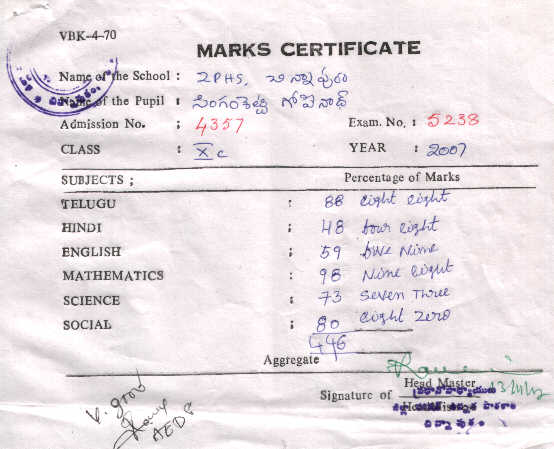 VBK-4-70
MARKS CERTIFICATE
Name of the School : ZPHS,
Name of the Pupil : గోపినాథ్
Admission No. : 4357 Exam. No. : 5238
CLASS : X c YEAR : 2007
SUBJECTS ; Percentage of Marks
TELUGU : 88 Eight Eight
HINDI : 48 four Eight
ENGLISH : 59 five Nine
MATHEMATICS : 98 Nine Eight
SCIENCE : 73 Seven Three
SOCIAL : 80 Eight Zero
Aggregate 446
V. good
Signature of Head Master